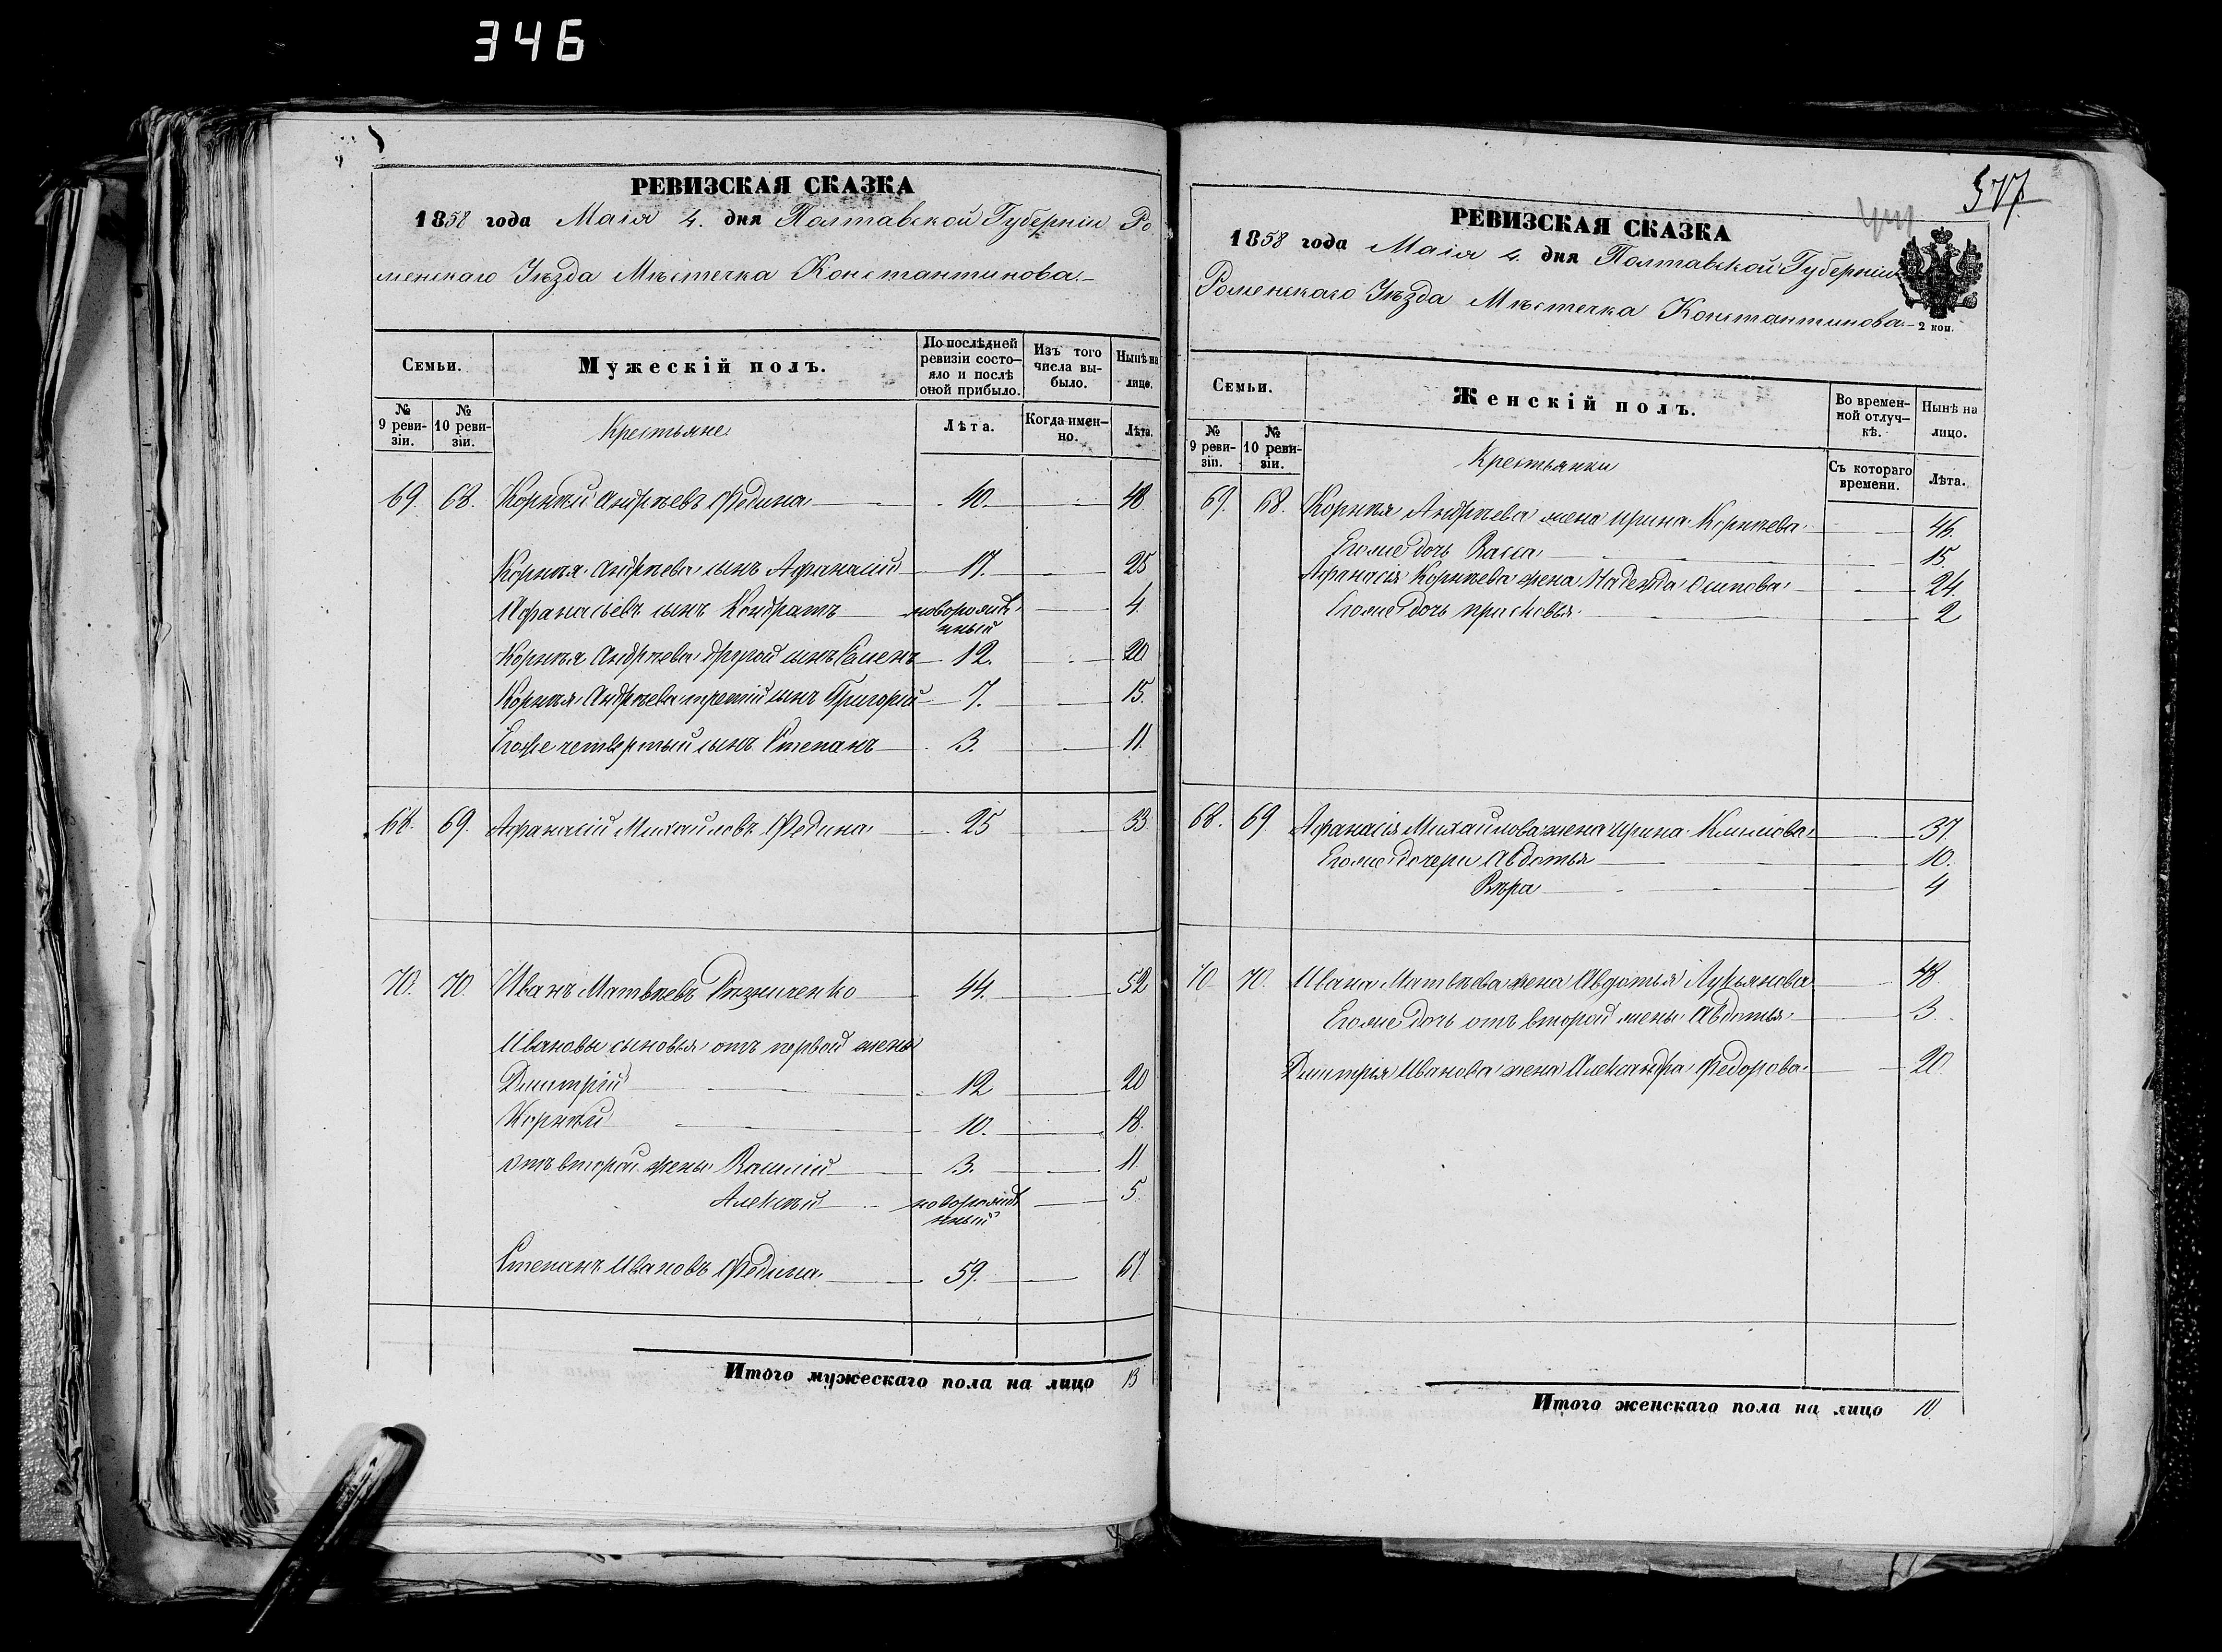 346
РЕВИЗСКАЯ СКАЗКА
1858 года Маія 4. дня Полтавской Губерніи Ро
менскаго Уѣзда Мѣстечка Константинова
Семьи.
Мужескій полъ.
По послѣдней ревизіи состояло и послѣ оной прибыло.
Изъ того числа выбыло.
Нынѣ на лице.
№ 9 ревизіи.
№ 10 ревизіи.
Крестьяне
Лѣта.
Когда именно.
Лѣта.
69. 68. Корнѣй Андрѣевъ Федина 40. 48
Корнѣя Андрѣева сынъ Афанасій 17. 25
Афанасьевъ сынъ Кондратъ новорожденный 4
Корнѣя Андрѣева другой сынъ Семенъ 12. 20
Корнѣя Андрѣева третій сынъ Григорій 7. 15.
Егоже четвертый сынъ Степанъ 3. 11.
68. 69. Афанасій Михайловъ Федина 25 33
70. 70. Иванъ Матвѣевъ Рѣзниченко 44. 52
Ивановы сыновья отъ первой жены
Дмитрій 12 20
Корнѣй 10. 18.
отъ второй жены Василій 3. 11.
Алексѣй новорожденный 5.
Степанъ Ивановъ Федина 59. 67.
Итого мужескаго пола на лицо 13
577.
РЕВИЗСКАЯ СКАЗКА
1858 года Маія 4. дня Полтавской Губерніи
Роменскаго Уѣзда Мѣстечка Константинова
2 коп.
Семьи.
Женскій полъ.
Во временной отлучкѣ.
Нынѣ на лицо.
№ 9 ревизіи.
№ 10 ревизіи.
Крестьянки
Съ котораго времени.
Лѣта.
69. 68. Корнѣя Андрѣева жена Ирина Корнѣева 46.
Егоже дочь Васса 15.
Афанасія Корнѣева жена Надежда Осипова 24.
Егоже дочь Присковья 2
68. 69. Афанасія Михайлова жена Ирина Климова 37.
Егоже дочери Авдотья 10.
Вѣра 4
70 70. Ивана Матвѣева жена Авдотья Лукьянова 48.
Егоже дочь отъ второй жены Авдотья 3.
Дмитрія Иванова жена Александра Федорова 20.
Итого женскаго пола на лицо 10.